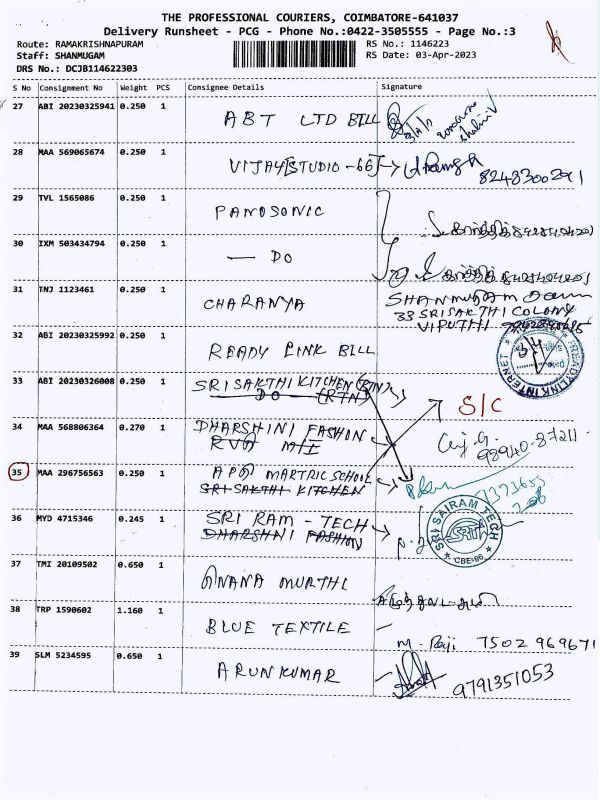 THE PROFESSIONAL COURIERS, COIMBATORE-641037
Delivery Runsheet - PCG - Phone No.:0422-3505555 - Page No.:3
Route: RAMAKRISHNAPURAM
Staff: SHANMUGAM
DRS No.: DCJB114622303
RS No.: 1146223
RS Date: 03-Apr-2023
S No Consignment No Weight PCS Consignee Details Signature
27 ABI 20230325941 0.250 1 ABT LTD BILL
28 MAA 569065674 0.250 1 VIJAY [STUDIO-66]
8248300291
29 TVL 1565086 0.250 1 PANOSONIC
30 IXM 503434794 0.250 1 — DO
31 TNJ 1123461 0.250 1 CHARANYA
SHANMUGAM
33 SRISAKTHI COLONY
32 ABI 20230325992 0.250 1 READY LINK BILL
READYLINK INTERNET
33 ABI 20230326008 0.250 1 SRI SAKTHI KITCHEN (RTN)
DO (RTN)
S/C
34 MAA 568806364 0.270 1 DHARSHINI FASHION
98940-87211
35 MAA 296756563 0.250 1 MARTRIC SCHOOL
SRI SAKTHI KITCHEN
36 MYD 4715346 0.245 1 SRI RAM - TECH
DHARSHNI FASHION
SRI SAIRAM TECH
CBE-06
37 TMI 20109502 0.650 1 GNANA MURTHI
38 TRP 1590602 1.160 1 BLUE TEXTILE
M. Raji 7502969671
39 SLM 5234595 0.650 1 ARUNKUMAR
9791351053